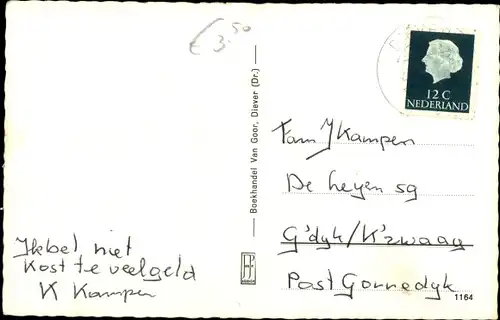 € 3.50
12 C
NEDERLAND
Boekhandel Van Goor, Diever (Dr.)
Fam J Kampen
De heyen 59
G'dyk/K'zwaag
Post Gorredyk
Ik bel niet
Kost te veel geld
K Kampen
1164